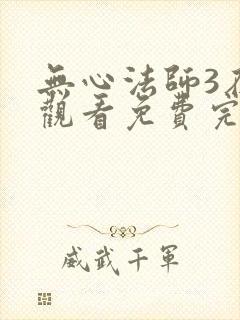 無心法師3在
觀看免費完
威武千軍